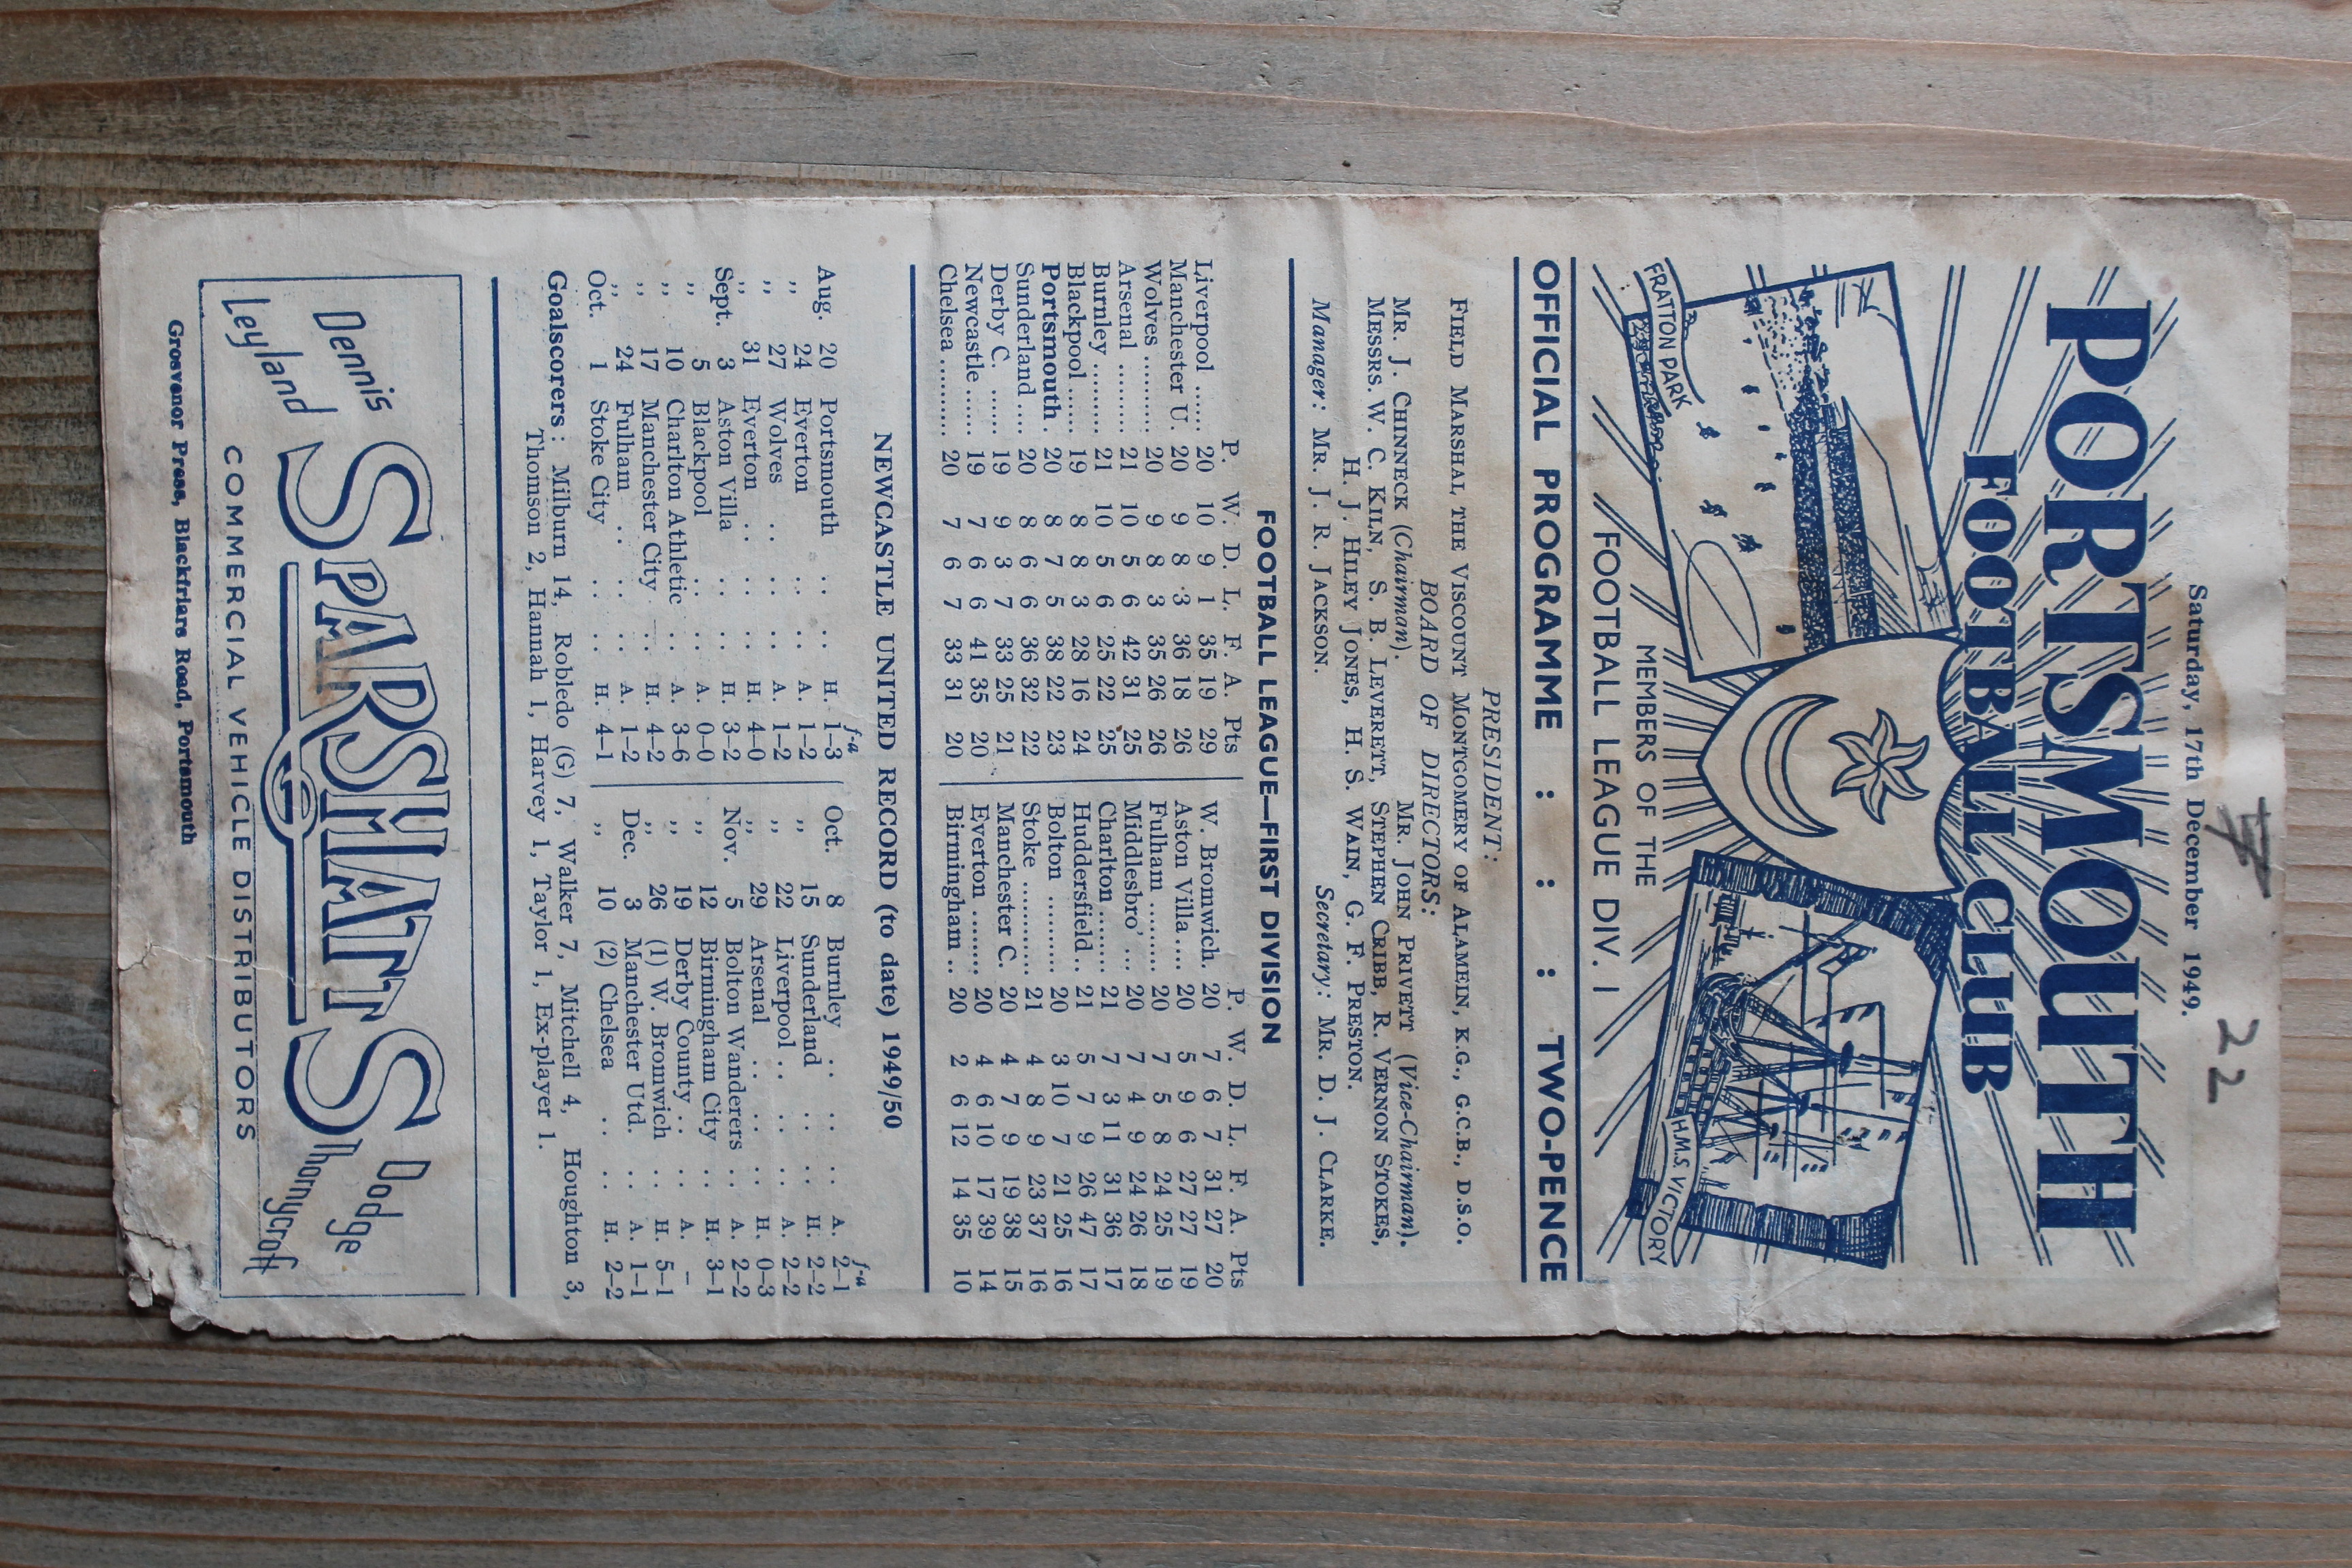 22
Saturday, 17th December 1949.
PORTSMOUTH
FOOTBALL CLUB
FRATTON PARK
H.M.S. VICTORY
MEMBERS OF THE
FOOTBALL LEAGUE DIV. 1
OFFICIAL PROGRAMME : : : TWO-PENCE
PRESIDENT:
FIELD MARSHAL THE VISCOUNT MONTGOMERY OF ALAMEIN, K.G., G.C.B., D.S.O.
BOARD OF DIRECTORS:
MR. J. CHINNECK (Chairman). MR. JOHN PRIVETT (Vice-Chairman).
MESSRS. W. C. KILN, S. B. LEVERETT, STEPHEN CRIBB, R. VERNON STOKES,
H. J. HILEY JONES, H. S. WAIN, G. F. PRESTON.
Manager: MR. J. R. JACKSON. Secretary: MR. D. J. CLARKE.
FOOTBALL LEAGUE—FIRST DIVISION
P. W. D. L. F. A. Pts P. W. D. L. F. A. Pts
Liverpool ...... 20 10 9 1 35 19 29 W. Bromwich. 20 7 6 7 31 27 20
Manchester U. 20 9 8 3 36 18 26 Aston Villa.... 20 5 9 6 27 27 19
Wolves .......... 20 9 8 3 35 26 26 Fulham ......... 20 7 5 8 24 25 19
Arsenal ......... 21 10 5 6 42 31 25 Middlesbro' ... 20 7 4 9 24 26 18
Burnley .......... 21 10 5 6 25 22 25 Charlton ........ 21 7 3 11 31 36 17
Blackpool ...... 19 8 8 3 28 16 24 Huddersfield.. 21 5 7 9 26 47 17
Portsmouth . 20 8 7 5 38 22 23 Bolton .......... 20 3 10 7 21 25 16
Sunderland .... 20 8 6 6 36 32 22 Stoke ............ 21 4 8 9 23 37 16
Derby C. ...... 19 9 3 7 33 25 21 Manchester C. 20 4 7 9 19 38 15
Newcastle ...... 19 7 6 6 41 35 20 Everton ......... 20 4 6 10 17 39 14
Chelsea .......... 20 7 6 7 33 31 20 Birmingham .. 20 2 6 12 14 35 10
NEWCASTLE UNITED RECORD (to date) 1949/50
f-a f-a
Aug. 20 Portsmouth .. .. H. 1-3 Oct. 8 Burnley .. .. .. A. 2-1
,, 24 Everton .. .. A. 1-2 ,, 15 Sunderland .. .. H. 2-2
,, 27 Wolves .. .. .. A. 1-2 ,, 22 Liverpool .. .. .. A. 2-2
,, 31 Everton .. .. .. H. 4-0 ,, 29 Arsenal .. .. .. H. 0-3
Sept. 3 Aston Villa .. .. H. 3-2 Nov. 5 Bolton Wanderers .. A. 2-2
,, 5 Blackpool .. .. A. 0-0 ,, 12 Birmingham City .. H. 3-1
,, 10 Charlton Athletic .. .. A. 3-6 ,, 19 Derby County .. .. A. –
,, 17 Manchester City .. .. H. 4-2 ,, 26 (1) W. Bromwich .. H. 5-1
,, 24 Fulham .. .. .. A. 1-2 Dec. 3 Manchester Utd. .. A. 1-1
Oct. 1 Stoke City .. .. H. 4-1 ,, 10 (2) Chelsea .. .. H. 2-2
Goalscorers: Milburn 14, Robledo (G) 7, Walker 7, Mitchell 4, Houghton 3,
Thomson 2, Hannah 1, Harvey 1, Taylor 1, Ex-player 1.
Dennis Dodge
Leyland SPARSHATTS Thornycroft
COMMERCIAL VEHICLE DISTRIBUTORS
Grosvenor Press, Blackfriars Road, Portsmouth